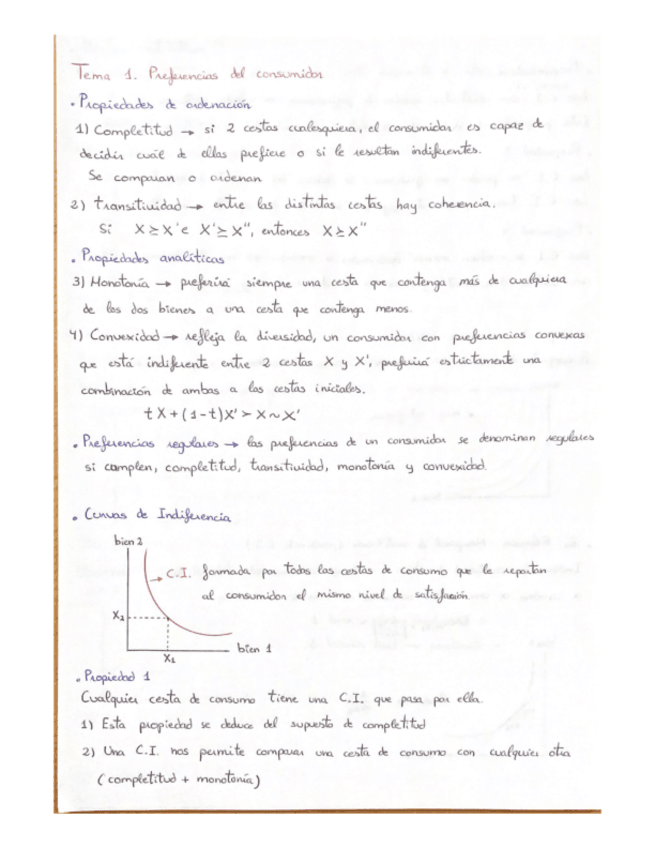 Tema 1. Preferencias del consumidor
• Propiedades de ordenación
1) Completitud → si 2 cestas cualesquiera, el consumidor es capaz de
decidir cuál de ellas prefiere o si le resultan indiferentes.
Se comparan o ordenan
2) transitividad → entre las distintas cestas hay coherencia.
Si X ≥ X' e X' ≥ X", entonces X ≥ X"
• Propiedades analíticas
3) Monotonía → preferirá siempre una cesta que contenga más de cualquiera
de los dos bienes a una cesta que contenga menos.
4) Convexidad → refleja la diversidad, un consumidor con preferencias convexas
que está indiferente entre 2 cestas X y X', preferirá estrictamente una
combinación de ambas a las cestas iniciales.
tX + (1-t)X' > X ~ X'
• Preferencias regulares → las preferencias de un consumidor se denominan regulares
si cumplen, completitud, transitividad, monotonía y convexidad.
• Curvas de Indiferencia
bien 2
→ C.I. formada por todas las cestas de consumo que le reportan
al consumidor el mismo nivel de satisfacción.
X₂
bien 1
X₁
• Propiedad 1
Cualquier cesta de consumo tiene una C.I. que pasa por ella.
1) Esta propiedad se deduce del supuesto de completitud
2) Una C.I. nos permite comparar una cesta de consumo con cualquier otra
(completitud + monotonía)